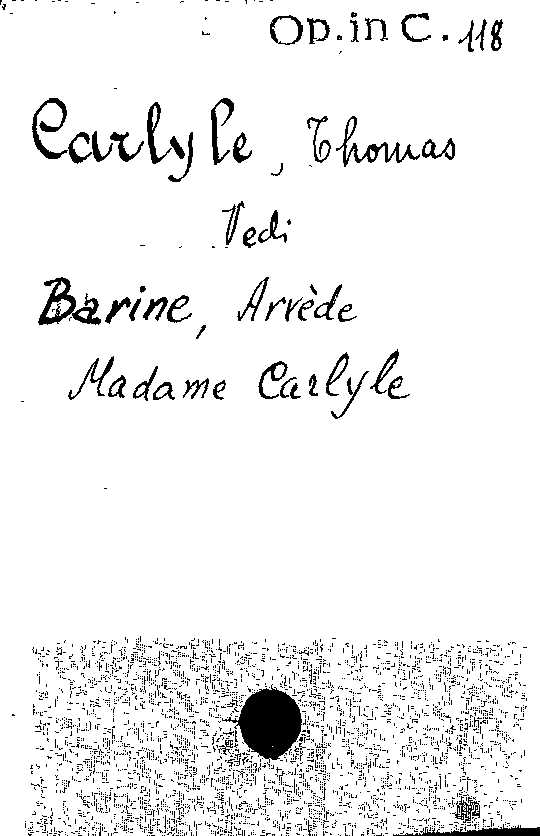 Op. in C. 118
Carlyle, Thomas
Vedi
Barine, Arvède
Madame Carlyle